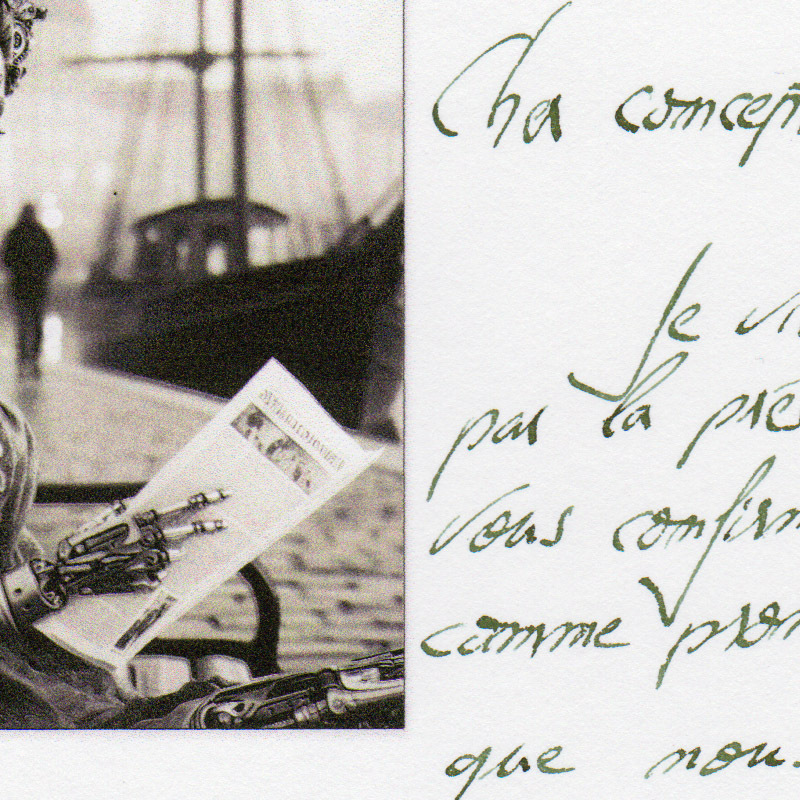 Cha concept
Je v
par la prés
vous confirm
comme prom
que nous